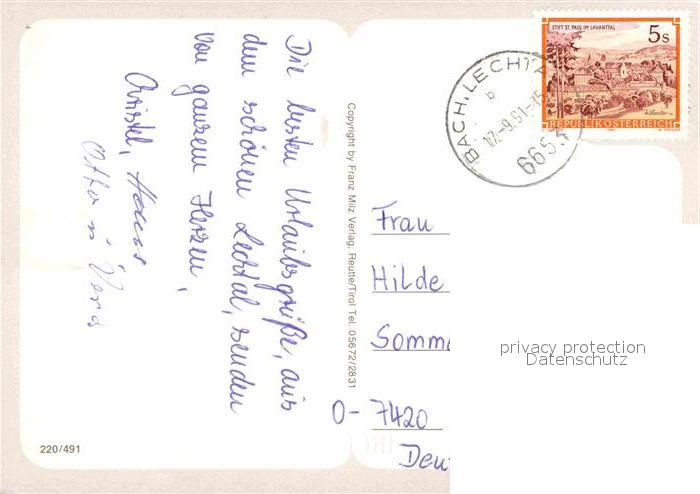 Die besten Urlaubsgrüße, aus
dem schönen Lechtal, senden
von ganzem Herzen,
Christl,
Otto u. Vera
Copyright by Franz Milz Verlag, Reutte/Tirol Tel. 05672/2831
220/491
STIFT ST. PAUL IM LAVANTTAL
5s
REPUBLIK ÖSTERREICH
BACH, LECHTA
b
17.-9.91-15
6653
Frau
Hilde
Somm
O- 7420
Deu
privacy protection
Datenschutz